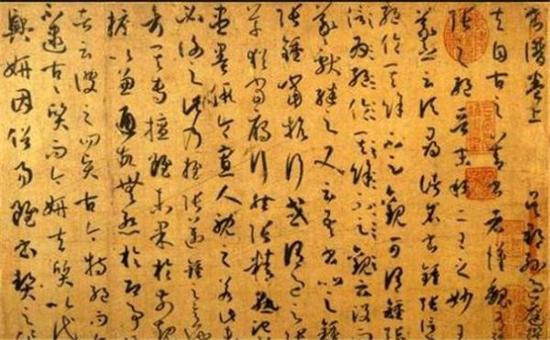 書譜卷上 吳郡孫過庭
夫自古之善書者漢魏有鍾
張之絕晉末稱二王之妙王
羲之云頃尋諸名書鍾張信
絕倫其餘不足觀可謂鍾張
云沒而
羲獻繼之又云吾書比之鍾
張鍾當抗行或謂過之張
草猶當雁行然張精熟池水
盡墨假令寡人耽之若此
必謝之此乃推張邁鍾之意
考其專擅雖未果於前規
摭以兼通故無慚於即事
者云彼之四賢古今特絕而今
不逮古古質而今妍夫質以代
興妍因俗易雖書契之作